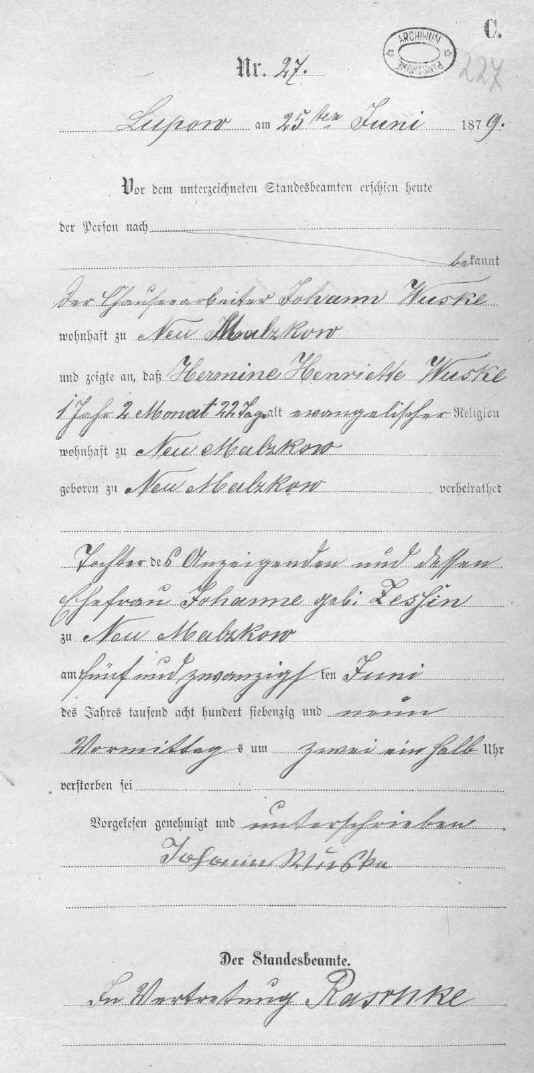 C.
ARCHIWUM
Nr. 27.
227
Lupow am 25ten Juni 1879.
Vor dem unterzeichneten Standesbeamten erschien heute
der Person nach
bekannt
der Chausseearbeiter Johann Wuske
wohnhaft zu Neu Malzkow
und zeigte an, daß Hermine Henriette Wuske
1 Jahr 2 Monat 22 Tage alt evangelischer Religion
wohnhaft zu Neu Malzkow
geboren zu Neu Malzkow verheirathet
Tochter des Anzeigenden und dessen
Ehefrau Johanne geb. Zessin
zu Neu Malzkow
am fünf und zwanzigsten Juni
des Jahres tausend acht hundert siebenzig und neun
Vormittags um zwei ein halb Uhr
verstorben sei
Vorgelesen genehmigt und unterschrieben
Johann Wuske
Der Standesbeamte.
In Vertretung Raschke